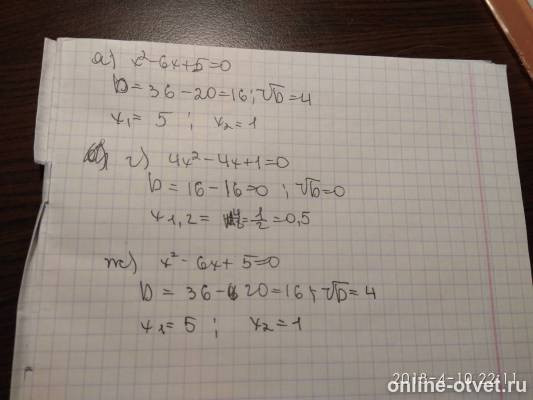 а) x²-6x+5=0
D=36-20=16; √D=4
x₁= 5 ; x₂=1
г) 4x²-4x+1=0
D=16-16=0 ; √D=0
x₁,₂ = =1/2=0,5
ж) x²-6x+5=0
D=36-20=16; √D=4
x₁=5 ; x₂=1
2018-4-10 22:11
online-otvet.ru